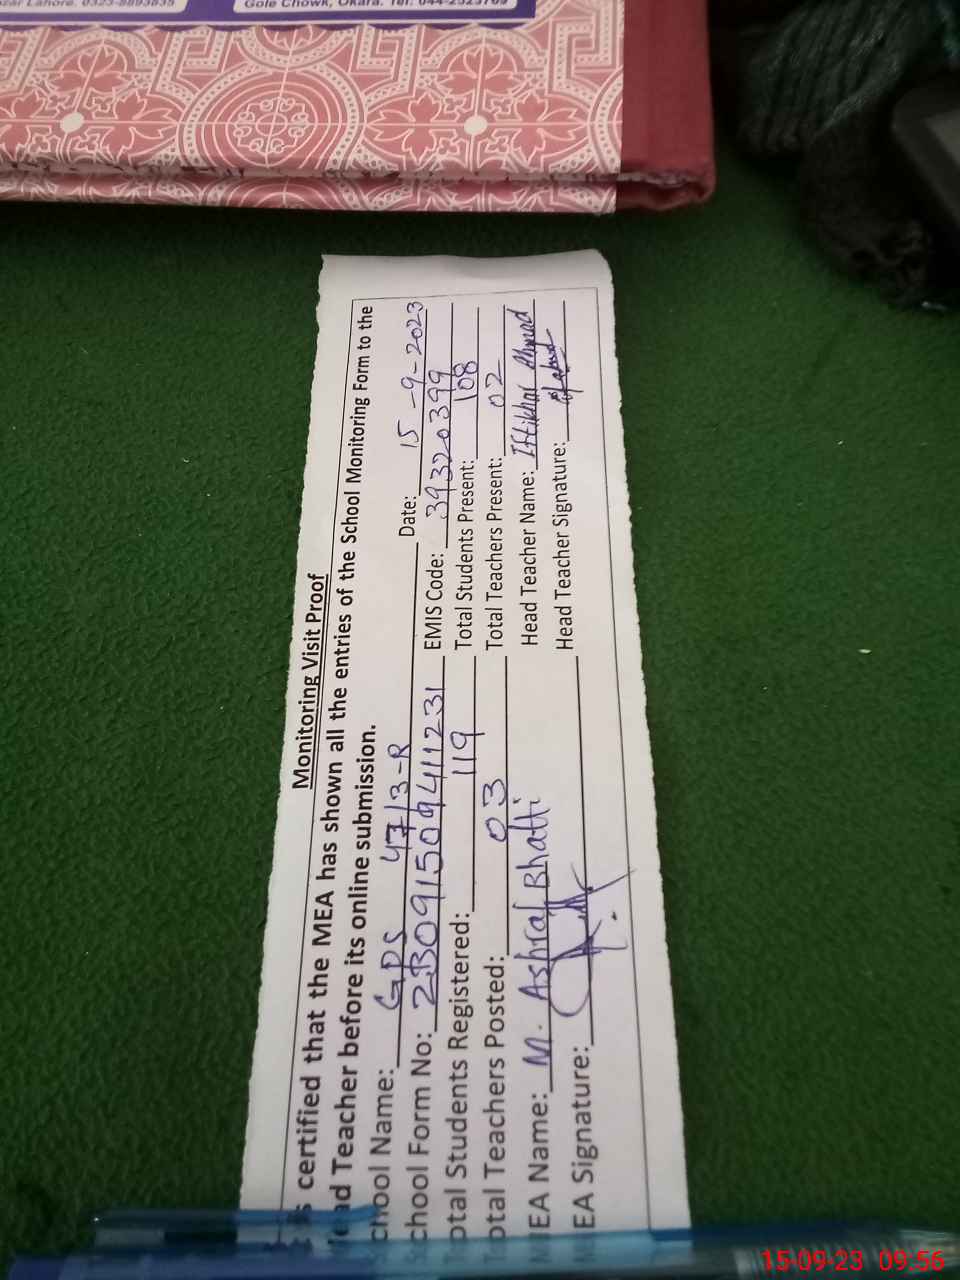 zar Lahore. 0323-8893835
Gole Chowk, Okara. Tel: 044-2523769
Monitoring Visit Proof
s certified that the MEA has shown all the entries of the School Monitoring Form to the
ead Teacher before its online submission.
chool Name: GPS 47/3-R Date: 15-9-2023
chool Form No: 23091509411231 EMIS Code: 39320399
otal Students Registered: 119 Total Students Present: 108
otal Teachers Posted: 03 Total Teachers Present: 02
MEA Name: M. Ashraf Bhatti Head Teacher Name: Iftikhar Ahmad
MEA Signature: Head Teacher Signature:
15-09-23 09:56